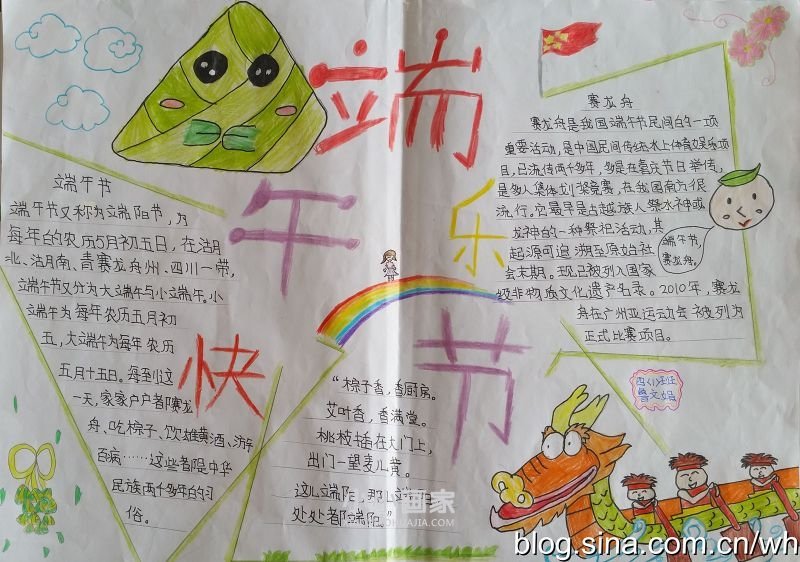 端午节快乐
端午节
端午节又称为端阳节,为
每年的农历5月初五日,在湖
北、湖南、青赛龙舟州、四川一带,
端午节又分为大端午与小端午。小
端午为每年农历五月初
五,大端午为每年农历
五月十五日。每到这
一天,家家户户都赛龙
舟、吃粽子、饮雄黄酒、游
百病……这些都是中华
民族两千多年的习
俗。
“粽子香,香厨房。
艾叶香,香满堂。
桃枝插在大门上,
出门一望麦儿黄。
这儿端阳,那儿端阳
处处都端阳。”
赛龙舟
赛龙舟是我国端午节民间的一项
重要活动,是中国民间传统水上体育娱乐项
目,已流传两千多年,多是在喜庆节日举传,
是多人集体划桨竞赛,在我国南方很
流行,它最早是古越族人祭水神或
龙神的一种祭祀活动,其
起源可追溯至原始社
会末期。现已被列入国家
级非物质文化遗产名录。2010年,赛龙
舟在广州亚运动会被列为
正式比赛项目。
端午节,
赛龙舟。
blog.sina.com.cn/wh